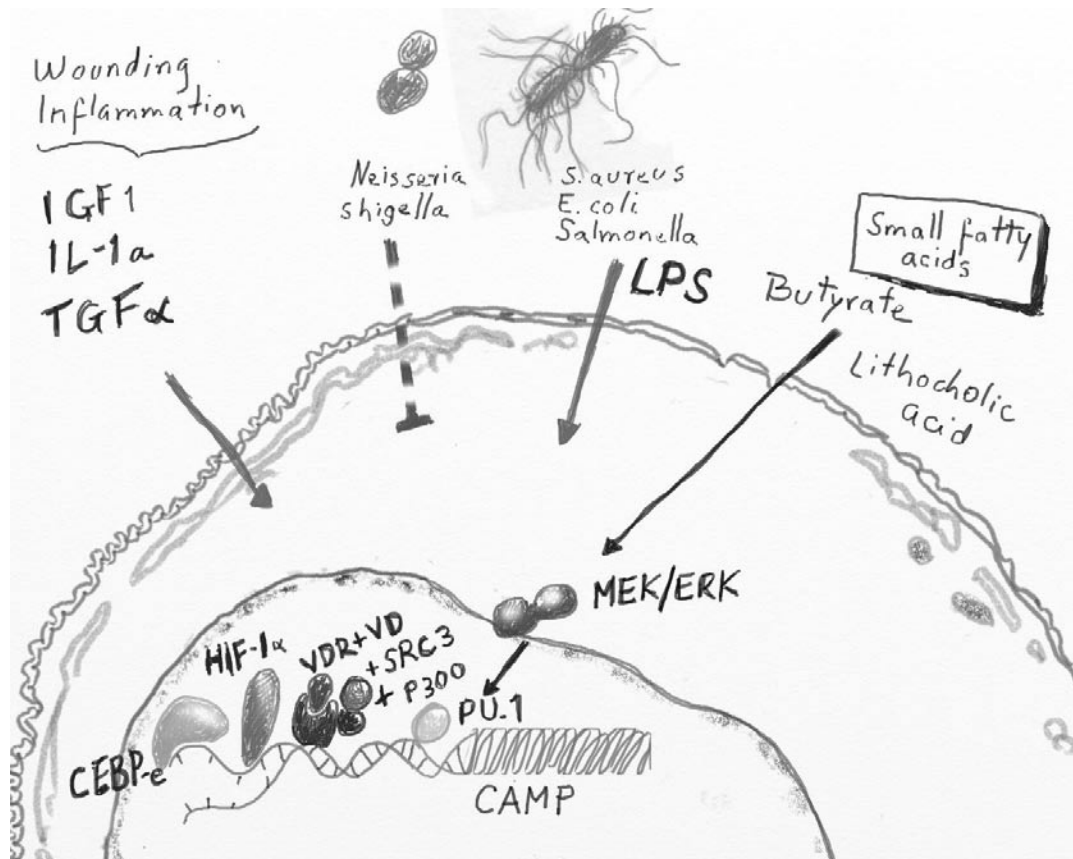 Wounding
Inflammation
IGF1
IL-1a
TGFα
Neisseria
shigella
S. aureus
E. coli
Salmonella
LPS
Small fatty
acids
Butyrate
Lithocholic
acid
MEK/ERK
HIF-1α
VDR+VD
+SRC3
+ P300
PU.1
CEBP-e
CAMP